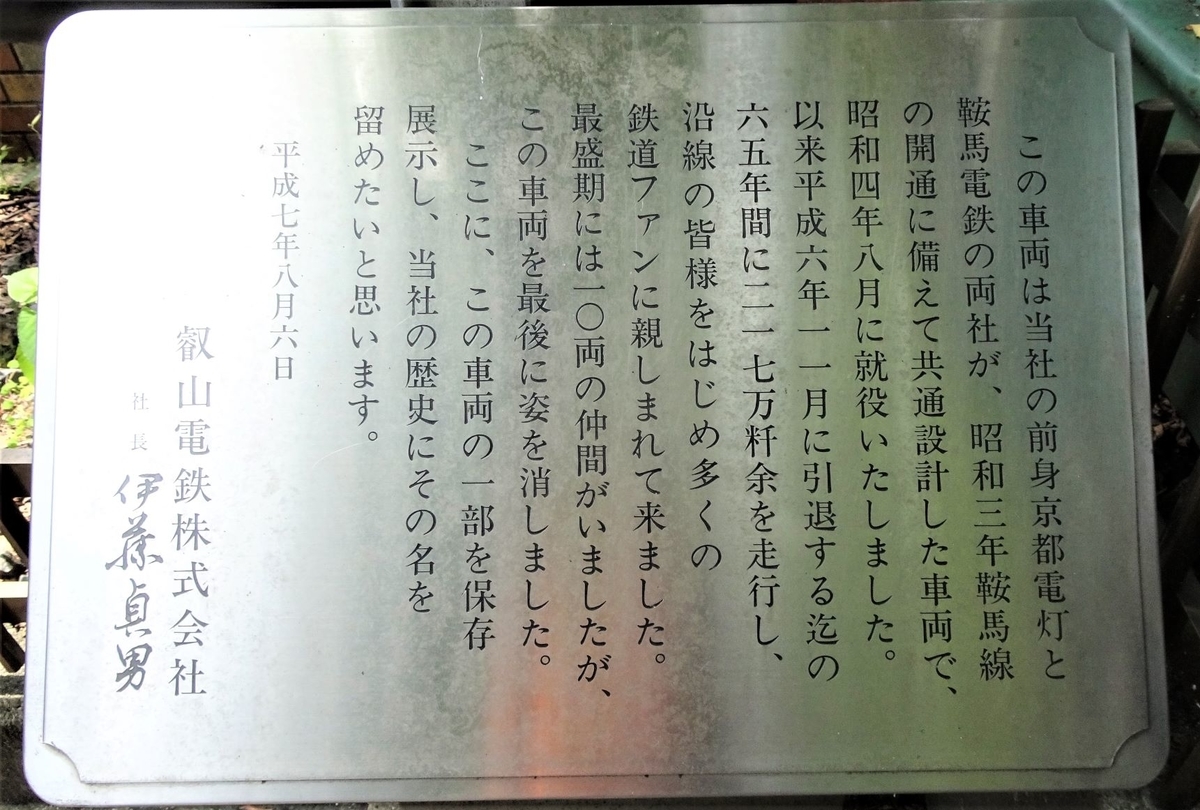 この車両は当社の前身京都電灯と
鞍馬電鉄の両社が、昭和三年鞍馬線
の開通に備えて共通設計した車両で、
昭和四年八月に就役いたしました。
以来平成六年一一月に引退する迄の
六五年間に二一七万粁余を走行し、
沿線の皆様をはじめ多くの
鉄道ファンに親しまれて来ました。
最盛期には一〇両の仲間がいましたが、
この車両を最後に姿を消しました。
ここに、この車両の一部を保存
展示し、当社の歴史にその名を
留めたいと思います。
平成七年八月六日
叡山電鉄株式会社
社長 伊藤貞男